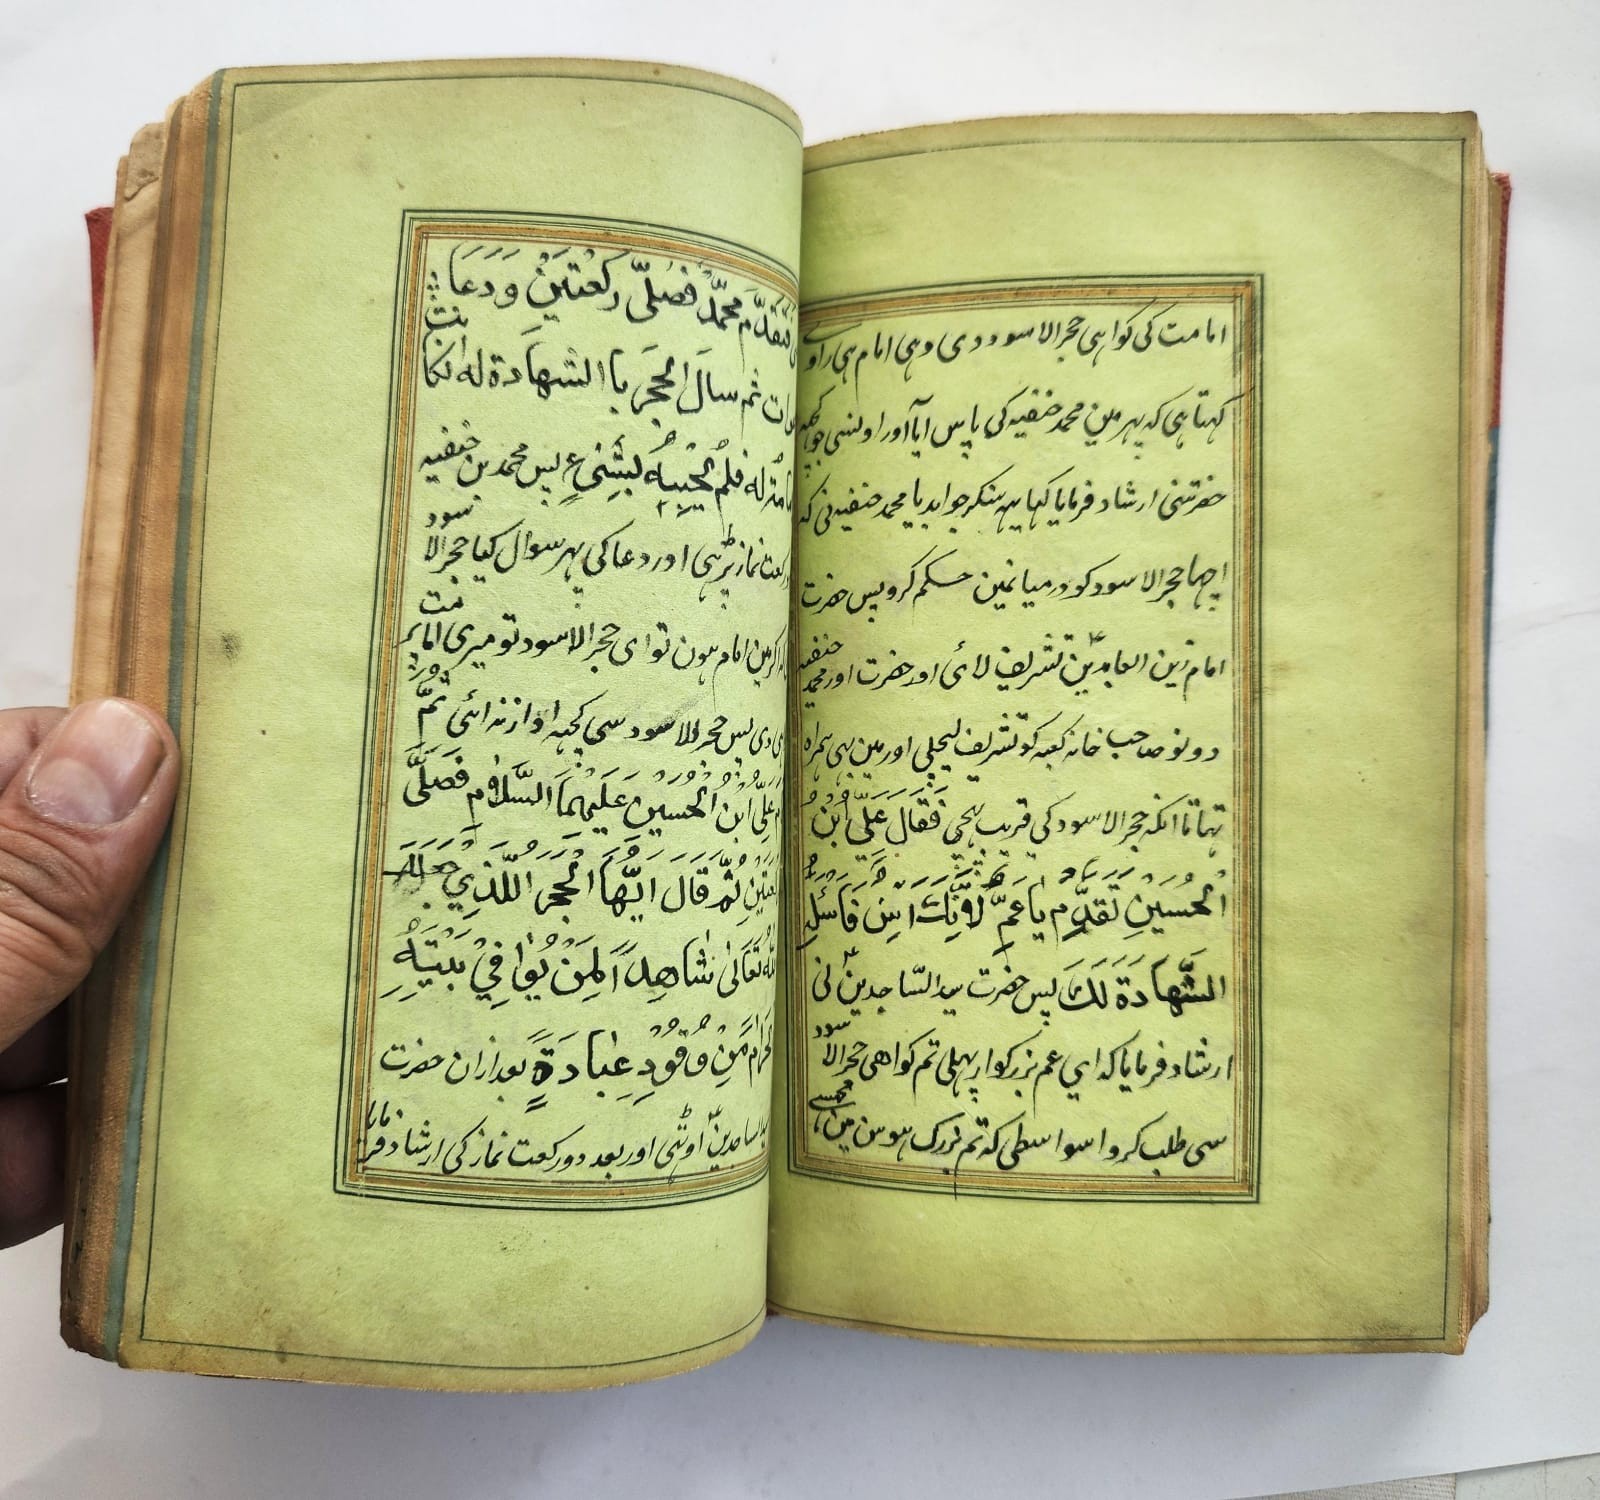 امامت کی کواہی حجر الاسود دی وہی امام ہی راوی
کہتا ہی کہ پہر مین محمد حنفیہ کی پاس آیا اور اونسی جو کچھہ
حضرتنی ارشاد فرمایا کہا یہ سنکر جواب دیا محمد حنفیہ نی کہ
اچہا حجر الاسود کو درمیانمین حکم کرو پس حضرت
امام زین العابدین تشریف لائی اور حضرت اور محمد حنفیہ
دونو صاحب خانہ کعبہ کو تشریف لیچلی اور مین بہی ہمراہ
تہا تا انکہ حجر الاسود کی قریب پہنچی فَقَالَ عَلِیِّ ابْنُ
الْحُسَیْنِ تَقَدَّمْ یَا عَمِّ لِاَنَّکَ اَسَنُ فَاسْئَلْ
الشَّهَادَةَ لَکَ پس حضرت سید السّاجدین نی
ارشاد فرمایا کہ ای عم بزرکوار پہلی تم کواهی حجر الاسود
سی طلب کرو اسواسطی کہ تم بزرک ہو سن مین ہمسی
فَتَقَدَّمَ مُحَمَّدٌ فَصَلّٰی رَکْعَتَیْنِ وَ دَعَا
ثم سالَ الْحَجَرَ با الشهادَة له انکانت
له فلم یُجِیْبهُ بشئیٍ پس محمد بن حنفیہ
رکعت نماز پڑہی اور دعا کی پہر سوال کیا حجر الاسود
اکر مین امام ہون تو ای حجر الاسود تو میری امامت پر
دی پس حجر الاسود سی کچہہ اواز نہ ائی ثُمَّ
عَلِیِّ ابْنُ الْحُسَیْنِ عَلَیْهِمَا السَّلَامُ فَصَلّٰی
رکعتین ثُمَّ قَالَ اَیُّهَا الْحَجَرُ الَّلذِیْ جعله
اللہ تَعَالٰی شَاهِداً لِمَنْ یُوافِیْ بَیْتَهُ
الحَرَامَ مِنْ وُفُوْدِ عِبَادَةٍ بعد ازان حضرت
سید الساجدین اوٹہی اور بعد دو رکعت نماز کی ارشاد فرمایا